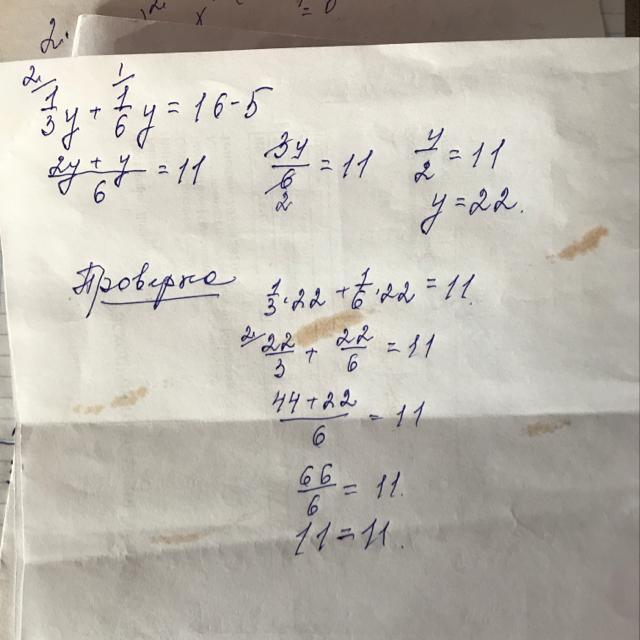 2.
2/ 1/
1/3 y + 1/6 y = 16 - 5
2y + y / 6 = 11   3y / 6 = 11   y / 2 = 11
2   y = 22.
Проверка   1/3 · 22 + 1/6 · 22 = 11.
2/ 22/3 + 22/6 = 11
44 + 22 / 6 = 11
66 / 6 = 11.
11 = 11.